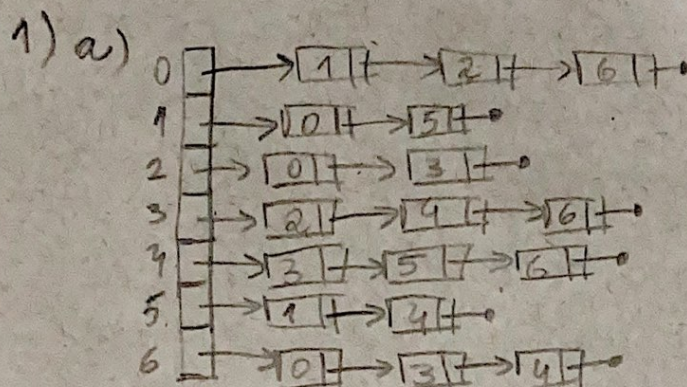 1) a)
0 1 2 6
1 0 5
2 0 3
3 2 4 6
4 3 5 6
5 1 4
6 0 3 4